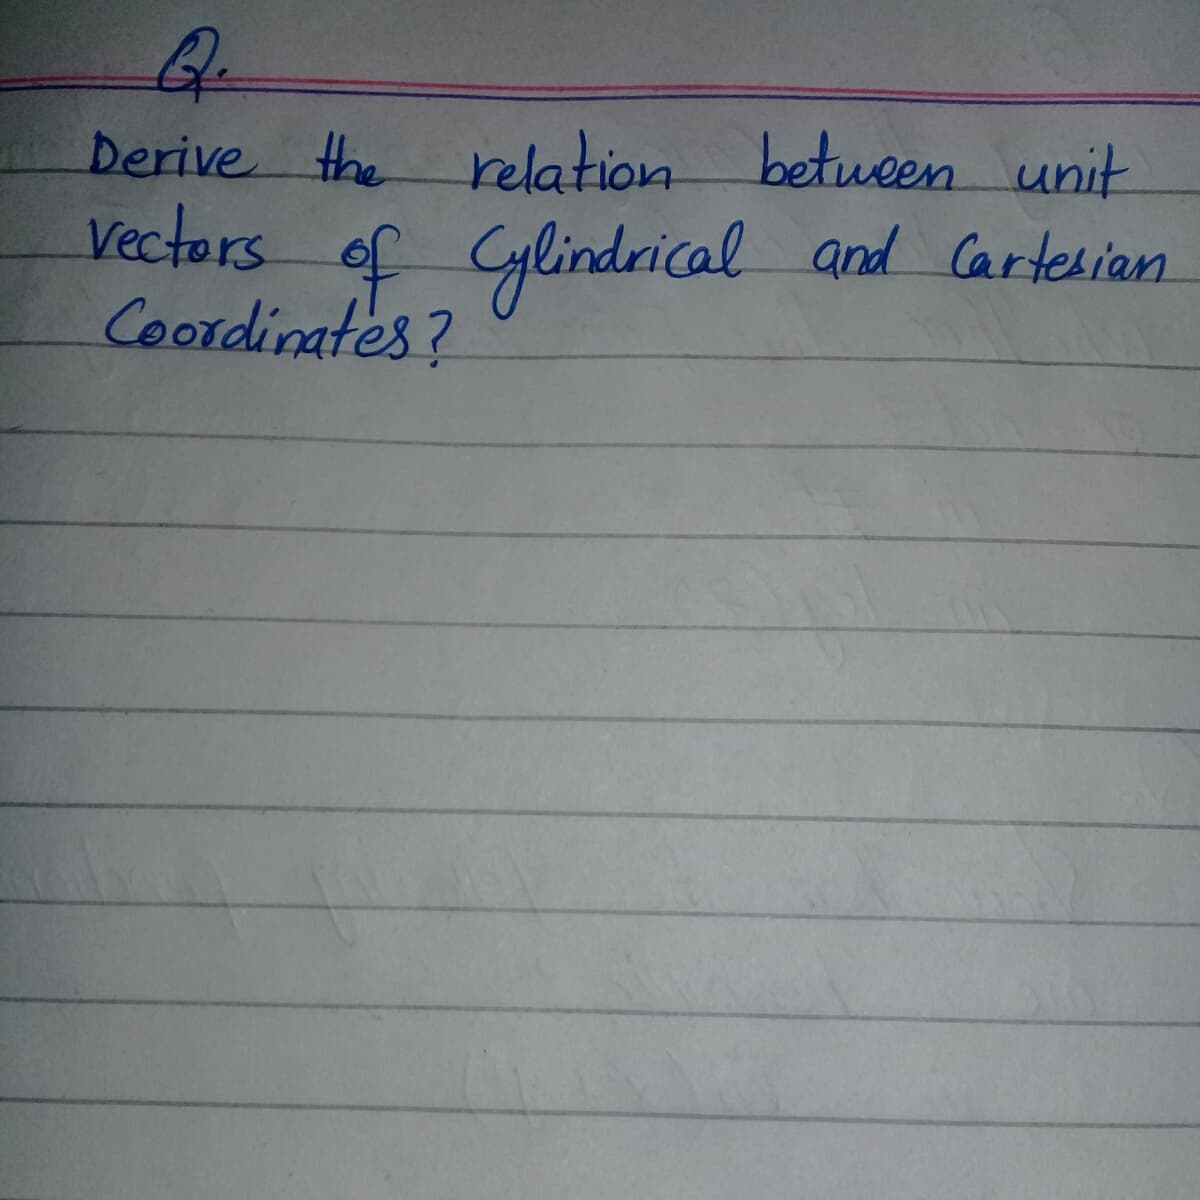 Q.
Derive the relation between unit
vectors of Cylindrical and Cartesian
Coordinates?